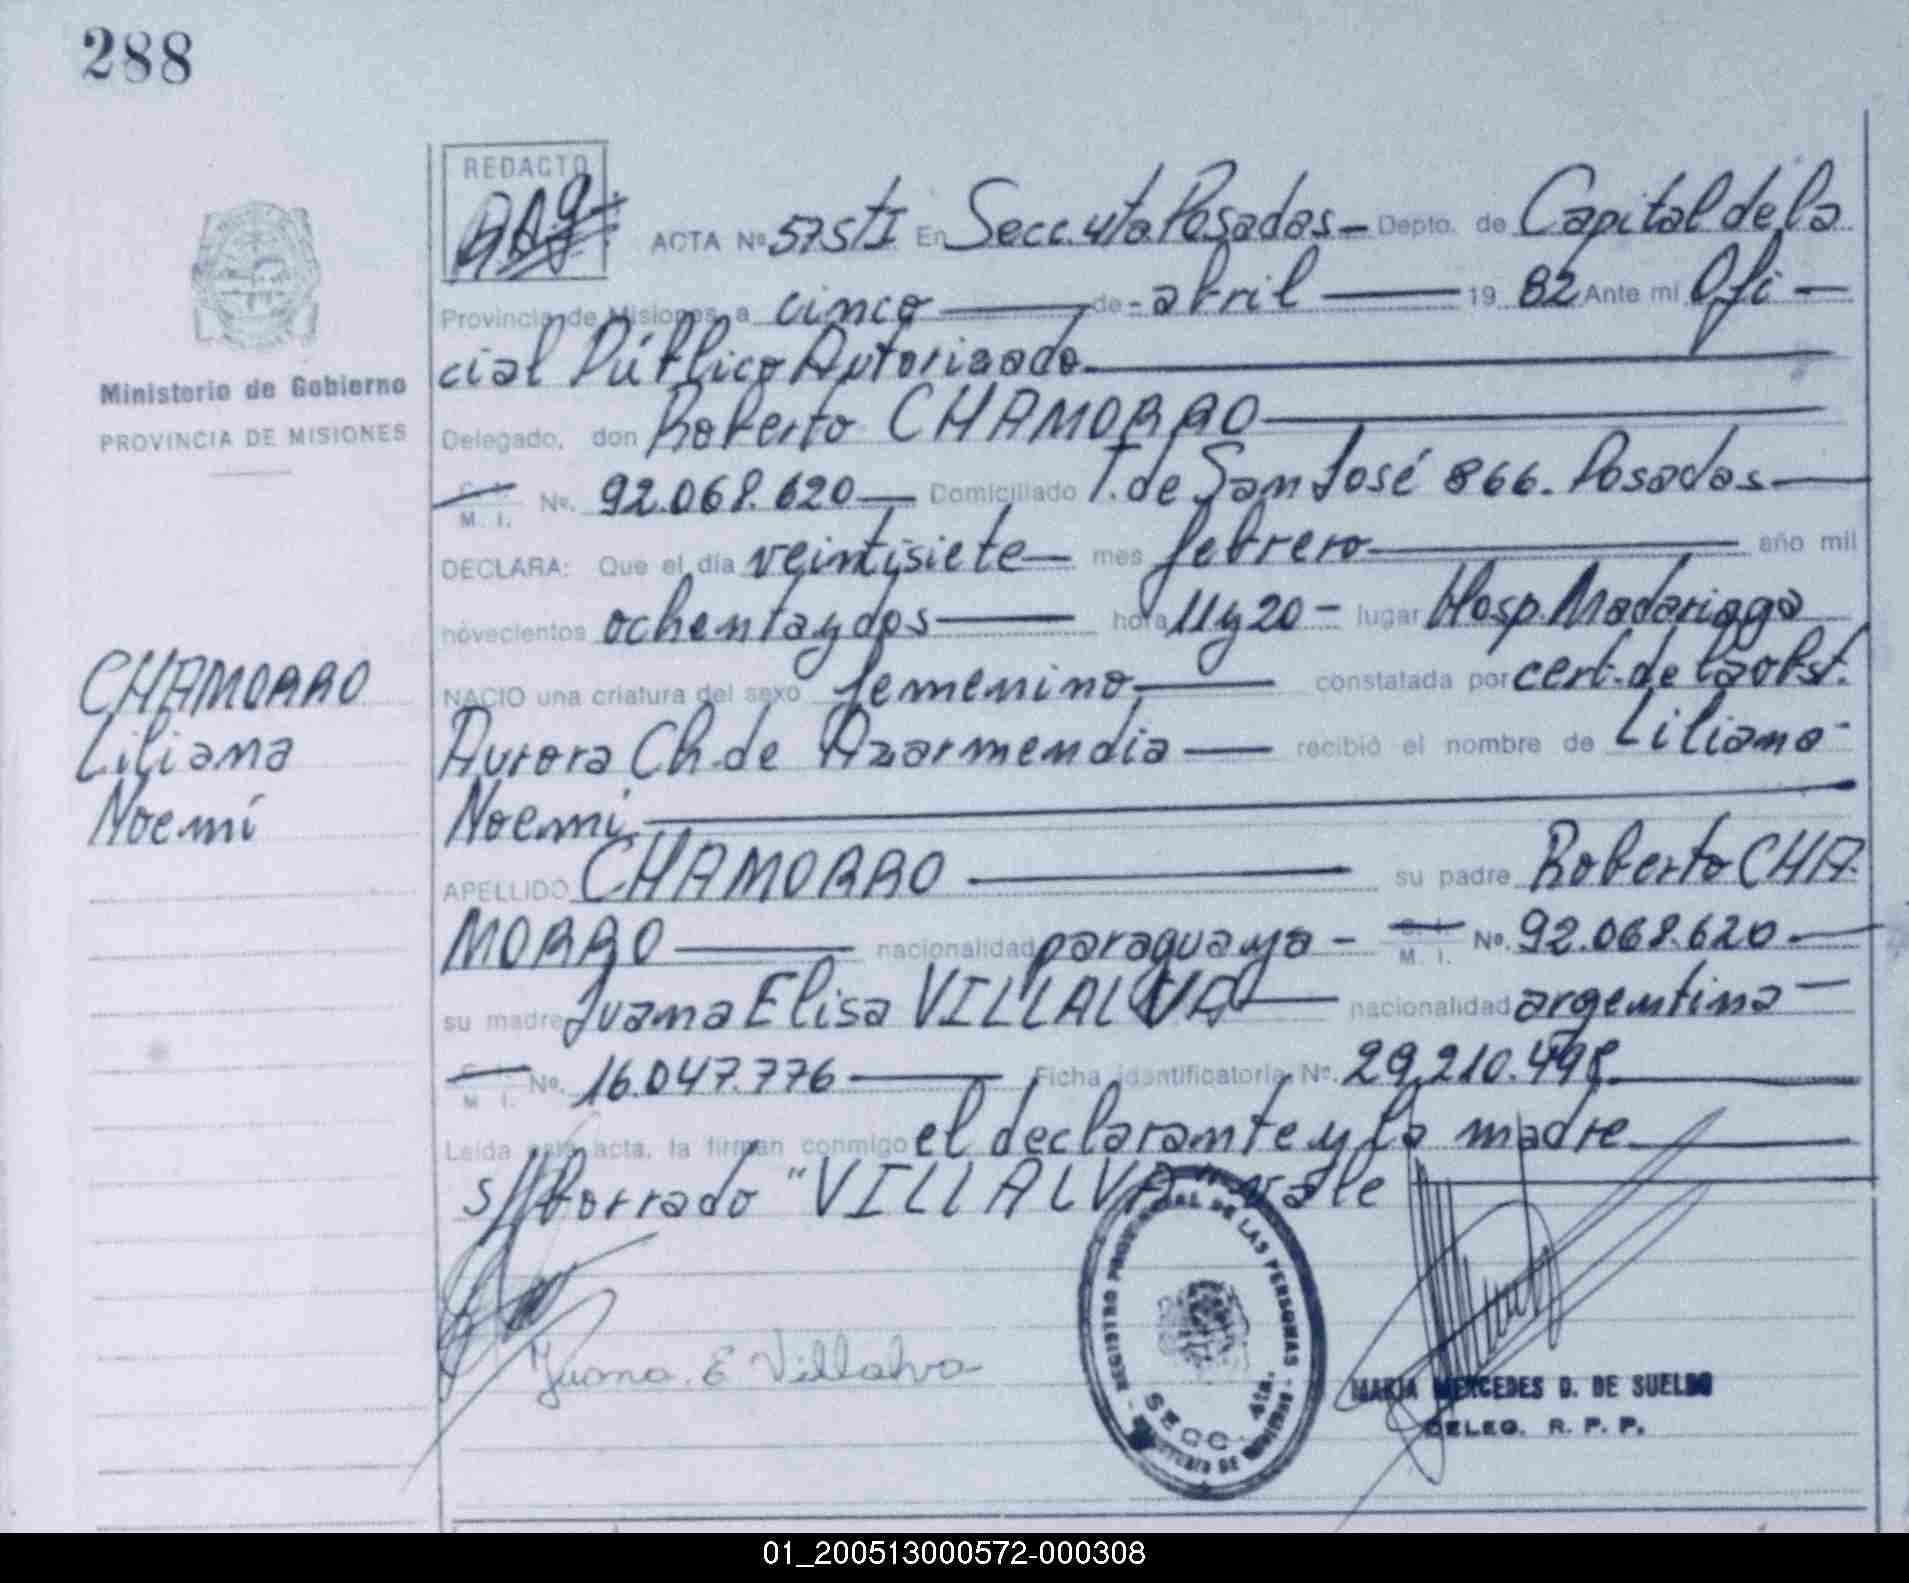 288
REDACTO
ACTA Nº 575 tI En Secc. 4ta. Posadas - Depto. de Capital de la
Provincia de Misiones, a cinco de - abril 19 82 Ante mi Ofi -
cial Público Autorizado
Ministerio de Gobierno
PROVINCIA DE MISIONES
Delegado, don Roberto CHAMORRO
C. I. M. I. Nº. 92.068.620 Domiciliado T. de San José 866. Posadas
DECLARA: Que el día veintisiete mes febrero año mil
novecientos ochenta y dos hora 11 y 20 - lugar Hosp. Madariaga
CHAMORRO
Liliana
Noemí
NACIO una criatura del sexo femenino constatada por cert. de la obst.
Aurora Ch. de Azarmendia recibió el nombre de Liliana
Noemi
APELLIDO CHAMORRO su padre Roberto CHA-
MORRO nacionalidad paraguaya - C. I. M. I. Nº. 92.068.620
su madre Juana Elisa VILLALVA nacionalidad argentina
C. I. M. I. Nº. 16.047.776 Ficha identificatoria Nº. 29.210.498
Leída esta acta, la firman conmigo el declarante y la madre
s/borrado "VILLALVA" vale
Juana. E Villalva
REGISTRO PROVINCIAL DE LAS PERSONAS
SECC. 4ta.
MARIA MERCEDES D. DE SUELDO
DELEG. R. P. P.
01_200513000572-000308